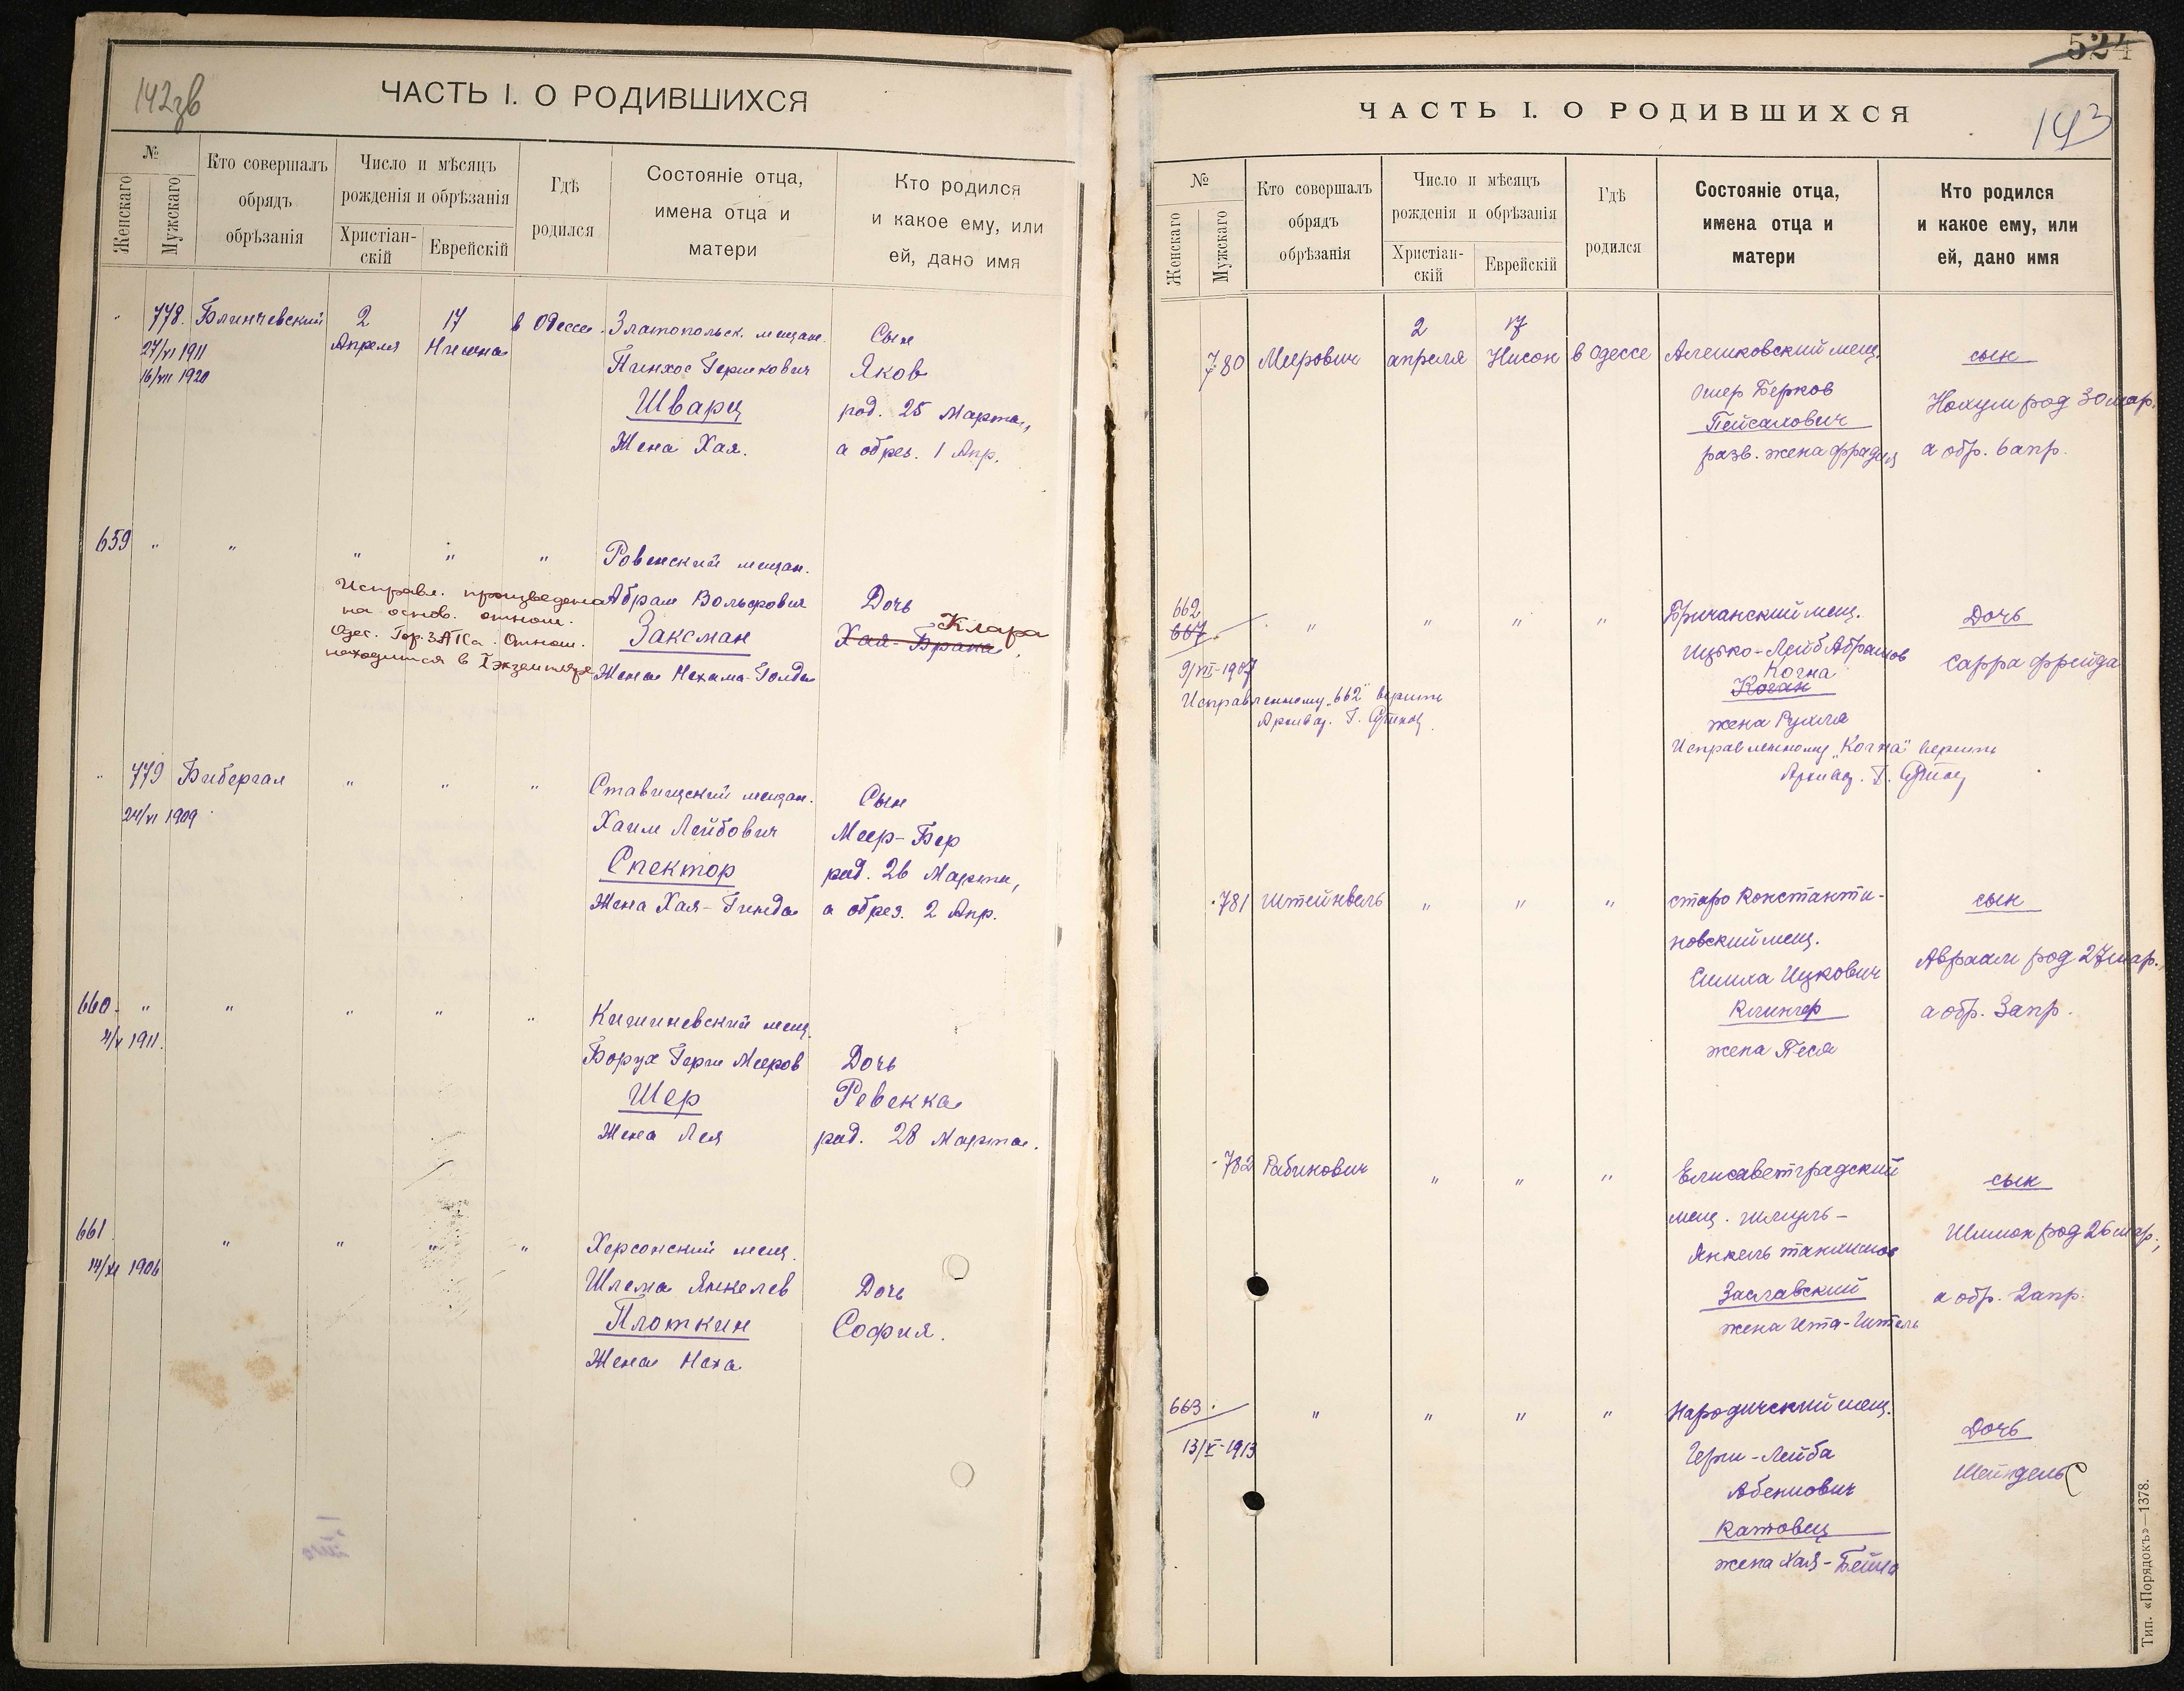 142зв
ЧАСТЬ I. О РОДИВШИХСЯ
№
Женскаго
Мужскаго
Кто совершалъ
обрядъ
обрѣзанія
Число и мѣсяцъ
рожденія и обрѣзанія
Христіан-
скій
Еврейскій
Гдѣ
родился
Состояніе отца,
имена отца и
матери
Кто родился
и какое ему, или
ей, дано имя
" 778. Блинчевский 2 17 в Одессе. Златопольск. мещан. Сын
27/VI 1911 Апреля Нисона
16/VII 1920
Пинхос Гершкович Яков
Шварц род. 25 Марта,
Жена Хая. а обрез. 1 Апр.
659 " " " " " Ровенский мещан.
Исправл. произведена Абрам Вольфович Дочь
на основ. отнош. Клара
Одес. Гор. ЗАГСа. Отнош. Заксман Хая-Брана
находится в I экземпляре Жена Нехама-Голда
" 779 Бибергал " " " Ставищский мещан. Сын
24/VI 1909
Хаим Лейбович Меер-Бер
Спектор род. 26 Марта,
Жена Хая-Гинда а обрез. 2 Апр.
660. " " " " " Кишиневский мещ.
4/V 1911.
Борух Герш Мееров Дочь
Шер Ревекка
Жена Лея род. 28 Марта.
661 " " " " Херсонский мещ.
14/XI 1906
Шлема Янкелев Дочь
Плоткин София.
Жена Неха
524
ЧАСТЬ I. О РОДИВШИХСЯ
143
№
Женскаго
Мужскаго
Кто совершалъ
обрядъ
обрѣзанія
Число и мѣсяцъ
рожденія и обрѣзанія
Христіан-
скій
Еврейскій
Гдѣ
родился
Состояніе отца,
имена отца и
матери
Кто родился
и какое ему, или
ей, дано имя
2 17
780 Меерович апреля Нисон в Одессе Алешковский мещ. сын
Ошер Берков Нохум род 30 мар.
Пейсахович
разв. жена Фрадля а обр. 6 апр.
662
667 " " " " Бричанский мещ. Дочь
Ицько-Лейб Абрамов Сарра Фрейда
9/VII-1907 Когна
Коган
Исправленному "662" верить
Архивар. Г.
жена Рухля
Исправленному "Когна" верить
Архивар. Г.
781 Штейнвель " " " старо Константи- сын
новский мещ.
Симха Ицкович Авраам род 27 мар.,
Клингер а обр. 3 апр.
жена Песя
782 Рабинович " " " Елисаветградский сын
мещ. Шмуль-
Янкель Шимон род 26 мар.,
Заславский а обр. 2 апр.
жена Ита-
663. " " " " Народичский мещ. Дочь
13/V-1913 Герш-Лейба Шейндель
Абенович
Катовец
жена Хая-Бейла
Тип. «Порядокъ»—1378.